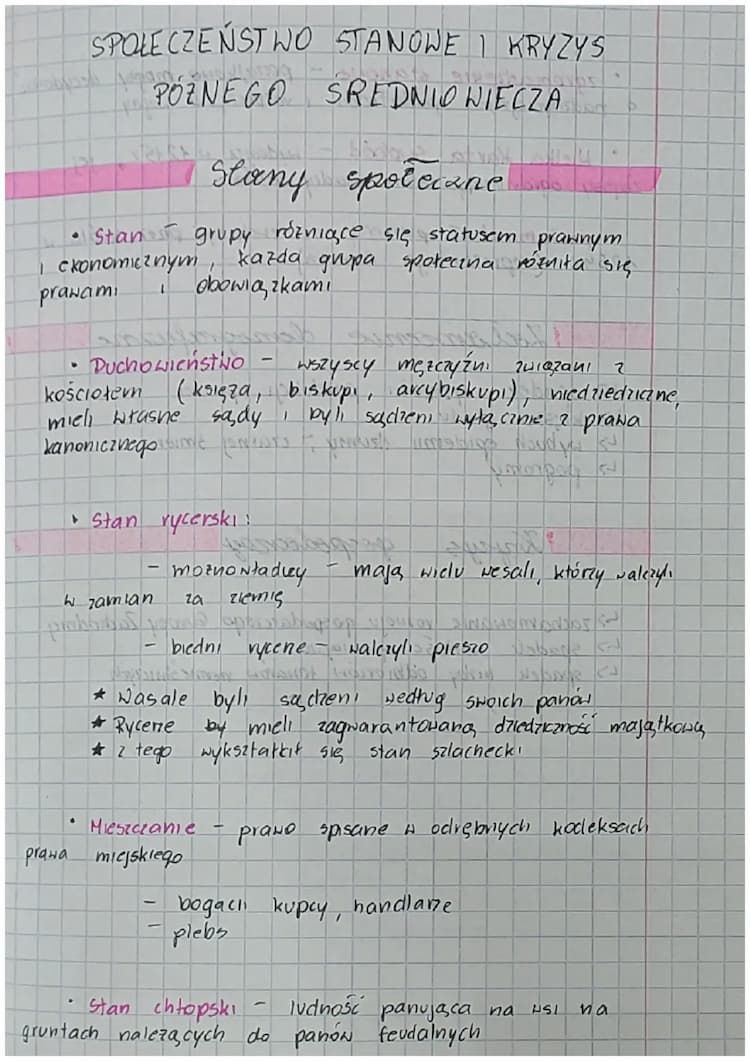 SPOŁECZEŃSTWO STANOWE I KRYZYS
PÓŹNEGO ŚREDNIOWIECZA
Stany społeczne
• Stan - grupy różniące się statusem prawnym
i ekonomicznym, każda grupa społeczna różniła się
prawami i obowiązkami
• Duchowieństwo - wszyscy mężczyźni związani z
kościołem (księża, biskupi, arcybiskupi), niedziedziczne,
mieli własne sądy i byli sądzeni wyłącznie z prawa
kanonicznego
• Stan rycerski:
- możnowładcy - mają wielu wesali, którzy walczyli
w zamian za ziemię
- biedni rycerze - walczyli pieszo
* Wasale byli sądzeni według swoich panów
* Rycerze by mieli zagwarantowaną dziedziczność majątkową
* z tego wykształcił się stan szlachecki
• Mieszczanie - prawo spisane w odrębnych kodeksach
prawa miejskiego
- bogaci kupcy, handlarze
- plebs
• Stan chłopski - ludność panująca na wsi na
gruntach należących do panów feudalnych